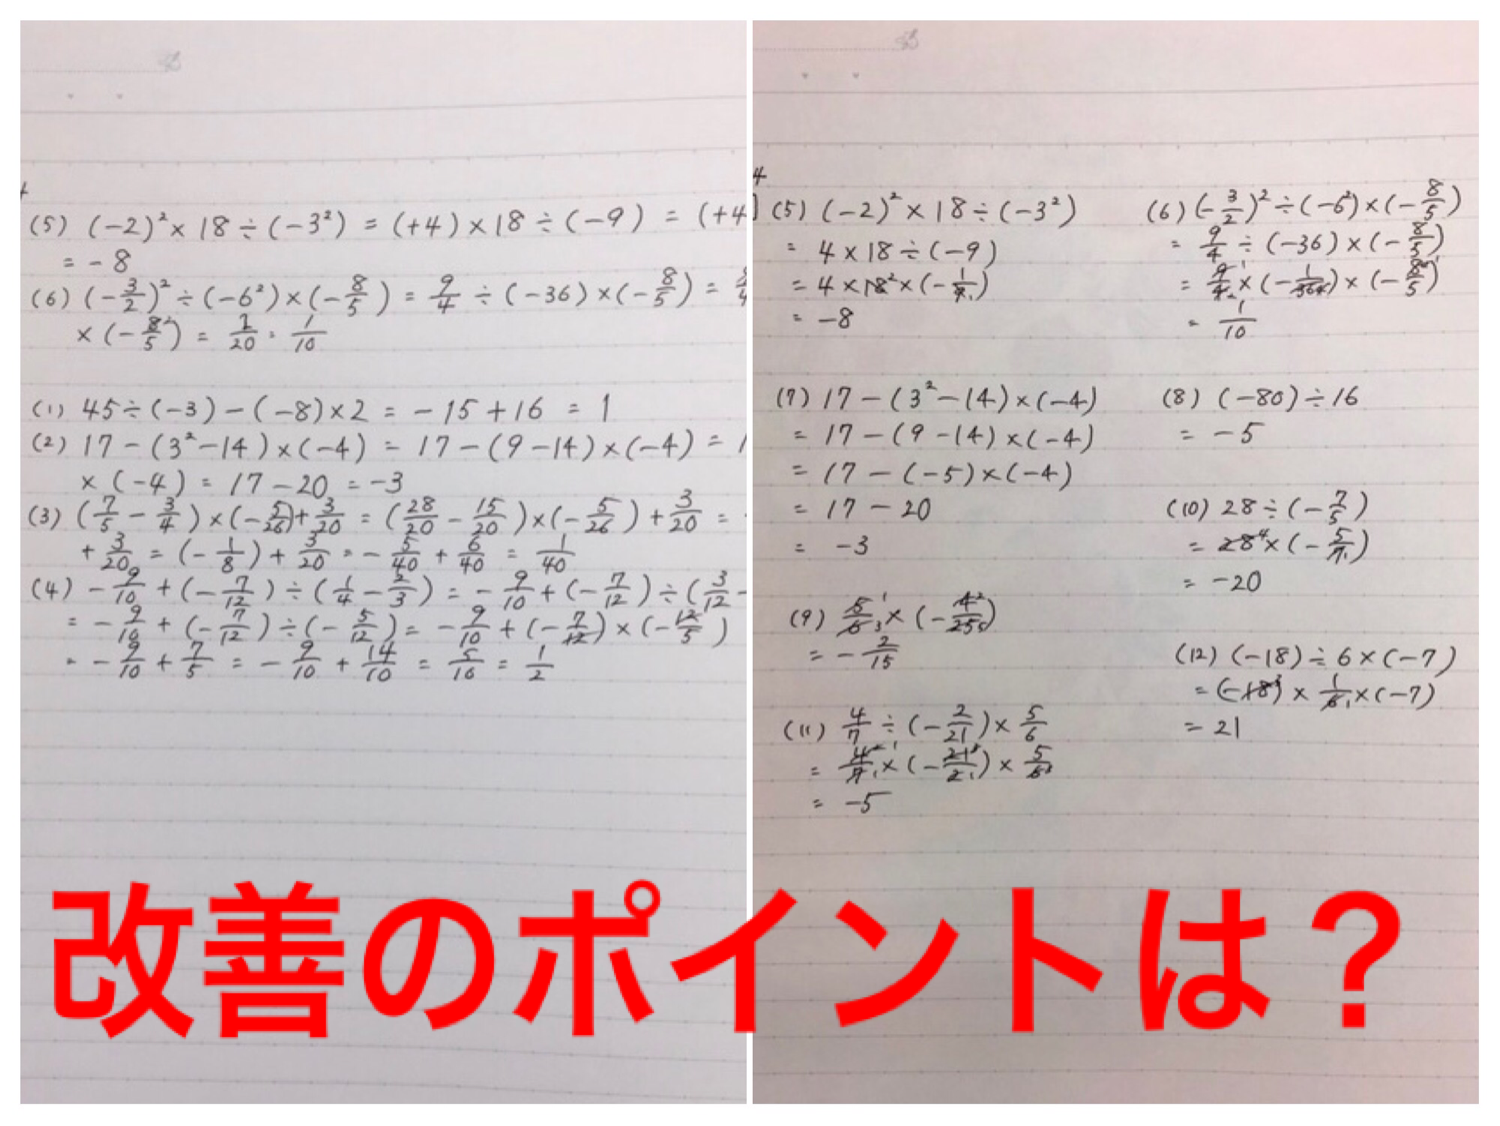 (5) (-2)²×18÷(-3²) = (+4)×18÷(-9) = (+4
= -8
(6) (-3/2)²÷(-6²)×(-8/5) = 9/4 ÷(-36)×(-8/5) =
×(-8/5) = 2/20 = 1/10
(1) 45÷(-3)-(-8)×2 = -15+16 = 1
(2) 17-(3²-14)×(-4) = 17-(9-14)×(-4) = 1
×(-4) = 17-20 = -3
(3) (7/5 - 3/4)×(-5/26)+3/20 = (28/20 - 15/20)×(-5/26)+3/20 =
+3/20 = (-1/8)+3/20 = -5/40+6/40 = 1/40
(4) -9/10+(-7/12)÷(1/4-2/3) = -9/10+(-7/12)÷(3/12-
= -9/10+(-7/12)÷(-5/12) = -9/10+(-7/12)×(-12/5)
= -9/10+7/5 = -9/10+14/10 = 5/10 = 1/2
4
(5) (-2)²×18÷(-3²)
= 4×18÷(-9)
= 4×18²×(-1/9₁)
= -8
(6) (-3/2)²÷(-6²)×(-8/5)
= 9/4÷(-36)×(-8/5)
= 9/4×(-1/36)×(-8/5)
= 1/10
(7) 17-(3²-14)×(-4)
= 17-(9-14)×(-4)
= 17-(-5)×(-4)
= 17-20
= -3
(8) (-80)÷16
= -5
(9) 5/6×(-4/25)
= -2/15
(10) 28÷(-7/5)
= 28⁴×(-5/7₁)
= -20
(11) 4/7÷(-2/21)×5/6
= 4/7×(-21/2)×5/6
= -5
(12) (-18)÷6×(-7)
= (-18³)×1/6₁×(-7)
= 21
改善のポイントは？